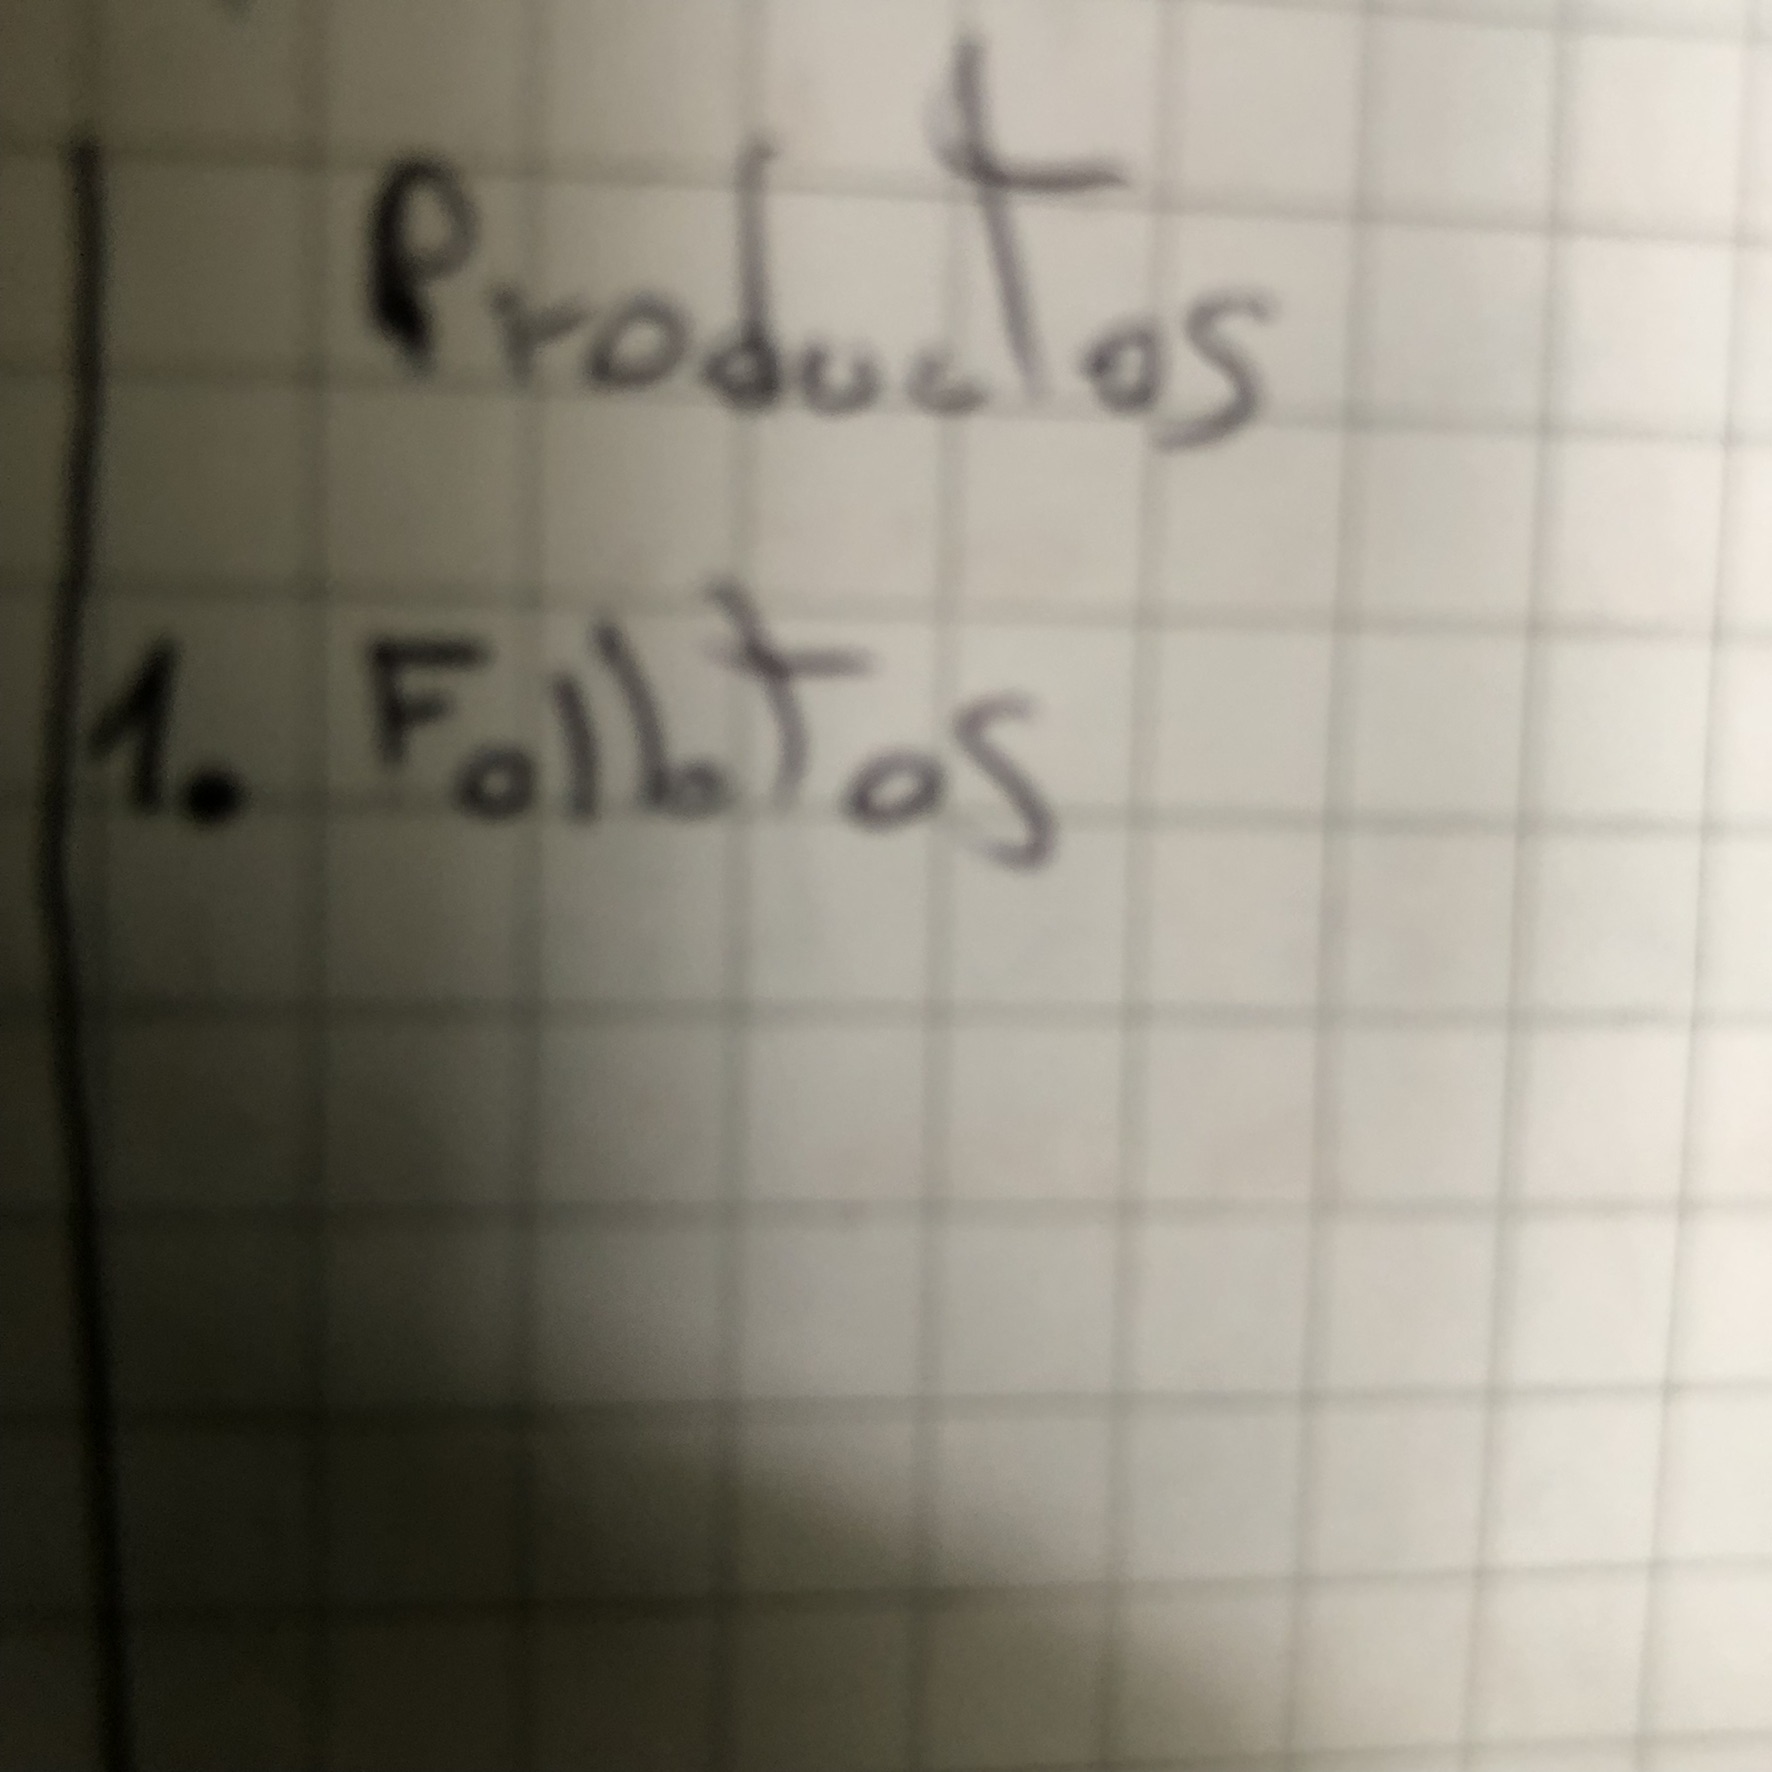 Productos
1. Folletos